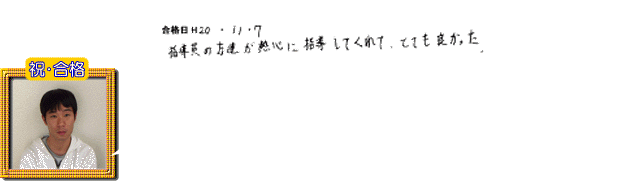 合格日 H20 ・ 11 ・ 7
指導員の方達が熱心に指導してくれて、とても良かった。
祝・合格